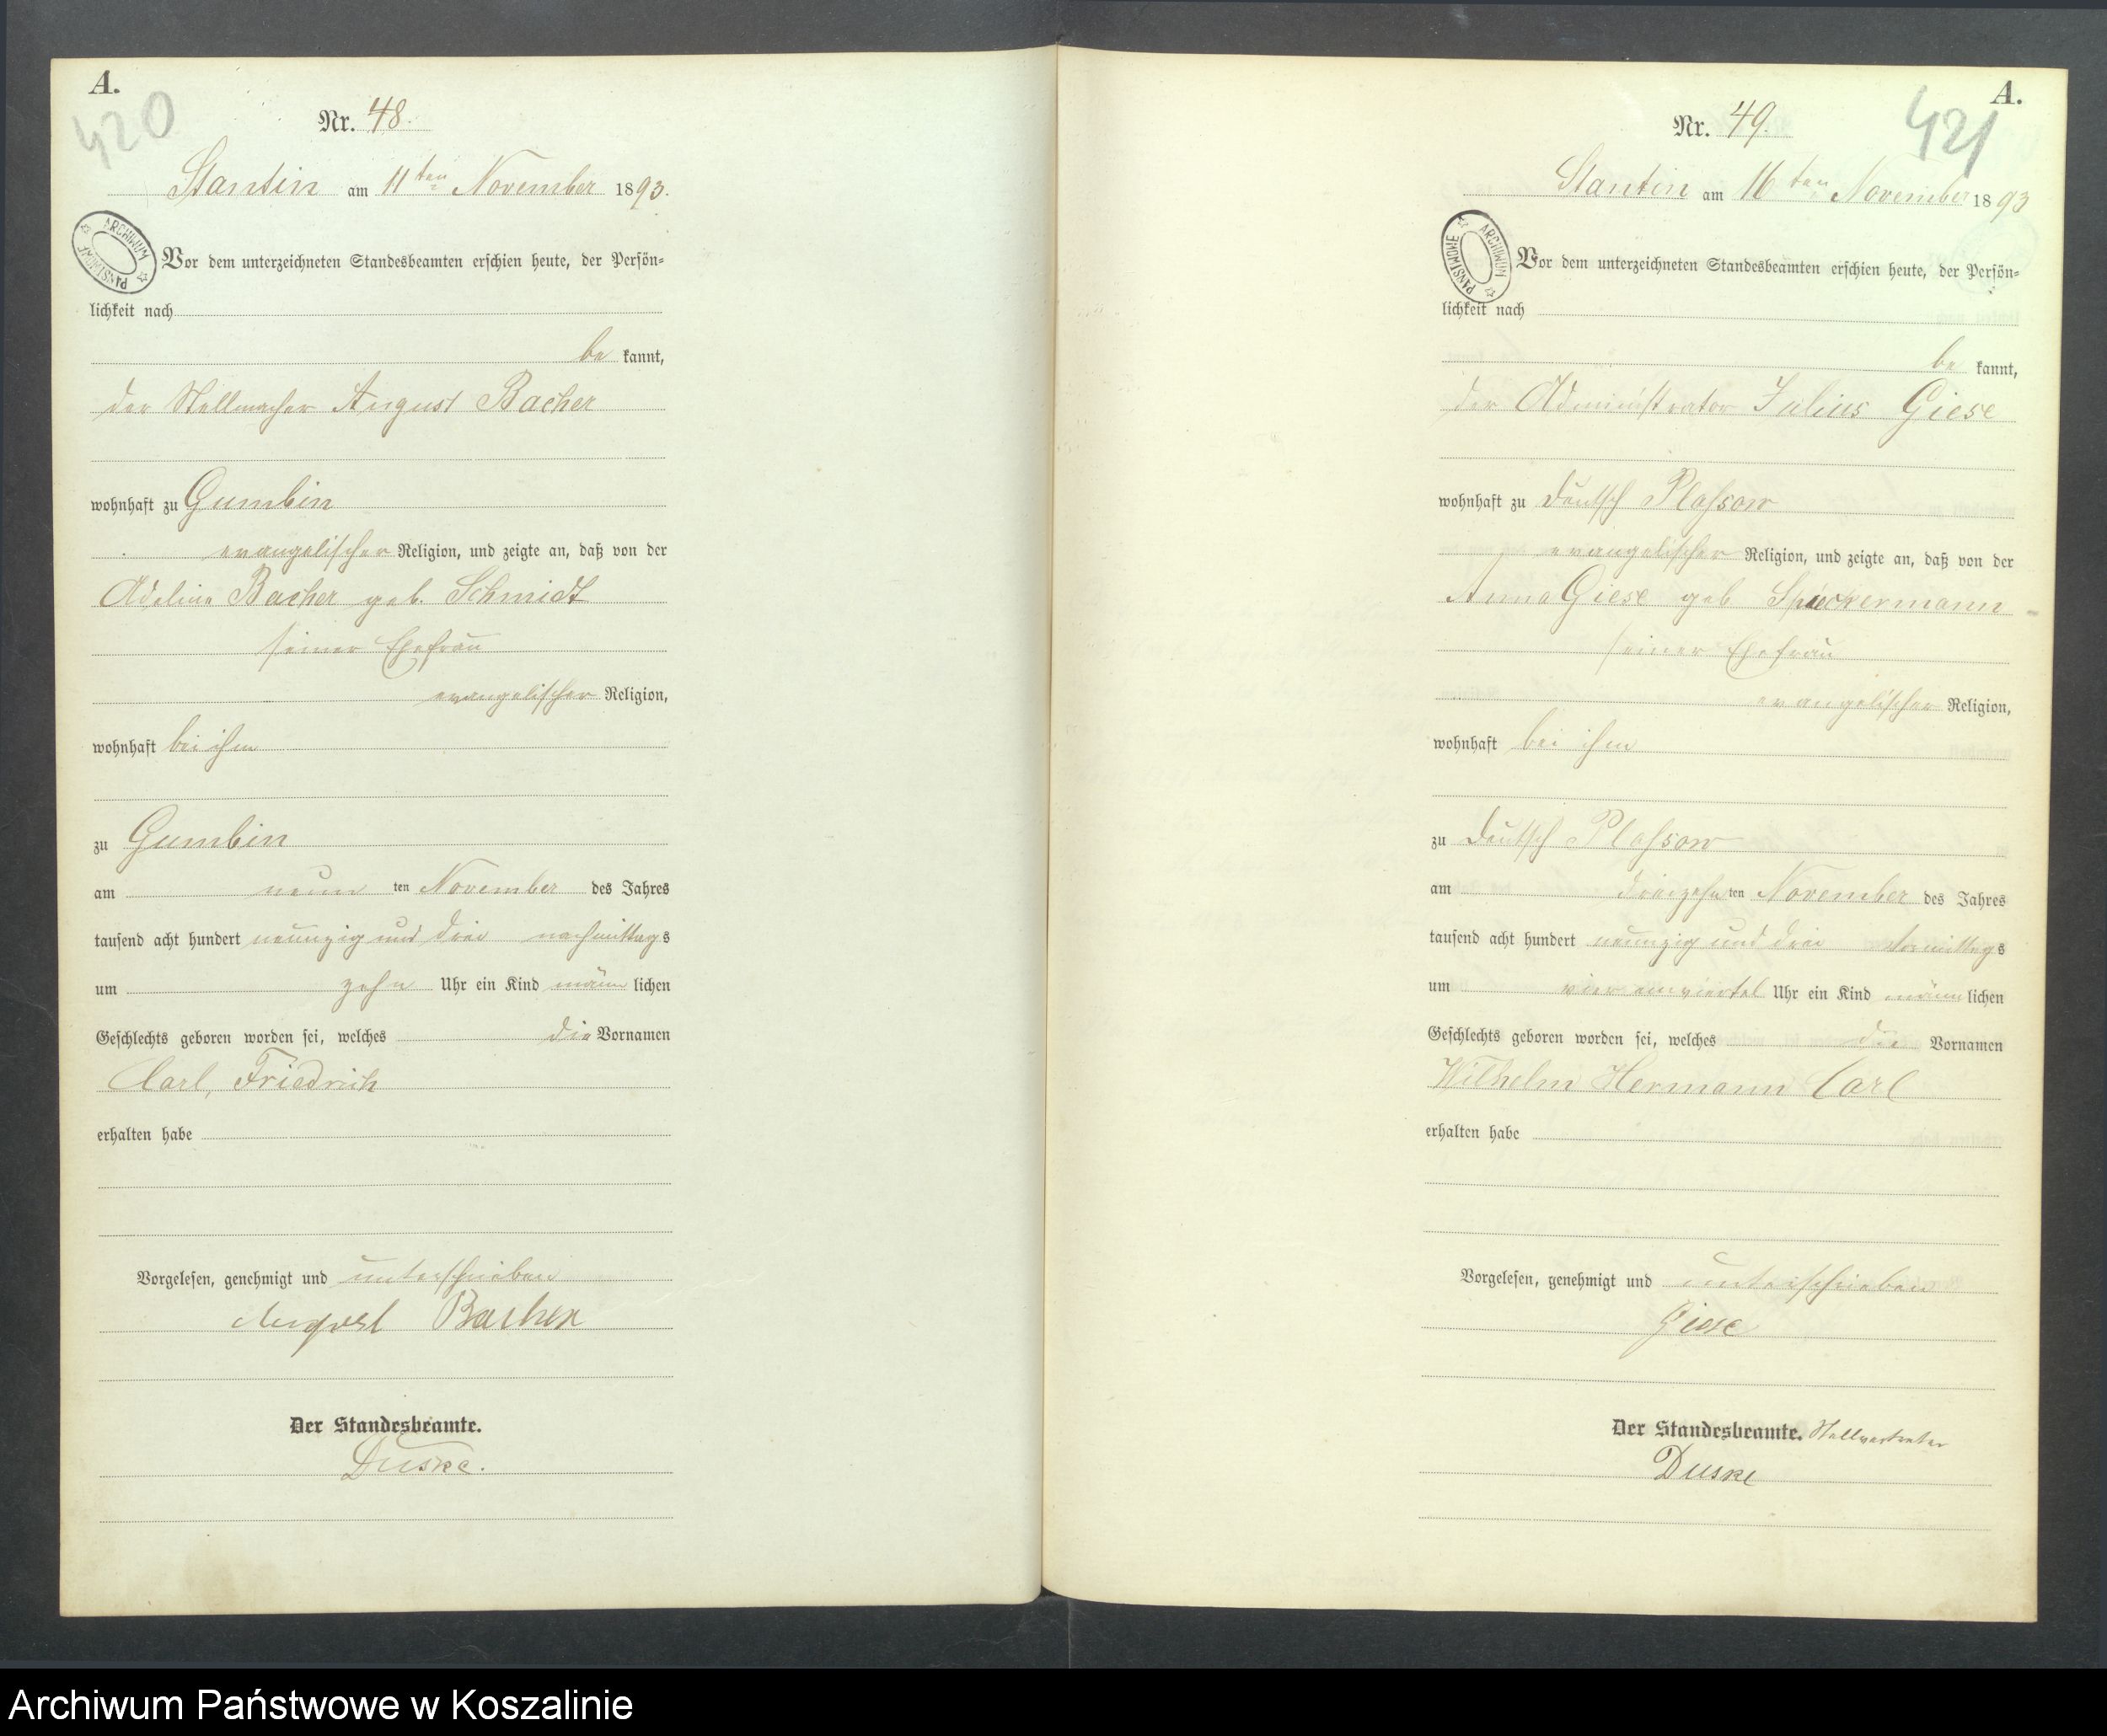 A.
420
Nr. 48.
Stantin am 11ten November 1893.
ARCHIWUM PAŃSTWOWE
Vor dem unterzeichneten Standesbeamten erschien heute, der Persön-
lichkeit nach
be kannt,
der Stellmacher August Bacher
wohnhaft zu Gumbin
evangelischer Religion, und zeigte an, daß von der
Adeline Bacher geb. Schmidt
seiner Ehefrau
evangelischer Religion,
wohnhaft bei ihm
zu Gumbin
am neun ten November des Jahres
tausend acht hundert neunzig und drei nachmittags
um zehn Uhr ein Kind männ lichen
Geschlechts geboren worden sei, welches die Vornamen
Carl, Friedrich
erhalten habe
Vorgelesen, genehmigt und unterschrieben
August Bacher
Der Standesbeamte.
Duske.
A.
421
Nr. 49.
Stantin am 16ten November 1893
ARCHIWUM PAŃSTWOWE
Vor dem unterzeichneten Standesbeamten erschien heute, der Persön-
lichkeit nach
be kannt,
der Administrator Julius Giese
wohnhaft zu Deutsch Plassow
evangelischer Religion, und zeigte an, daß von der
Anna Giese geb Spickermann
seiner Ehefrau
evangelischer Religion,
wohnhaft bei ihm
zu Deutsch Plassow
am dreizehn ten November des Jahres
tausend acht hundert neunzig und drei vormittags
um vier einviertel Uhr ein Kind männ lichen
Geschlechts geboren worden sei, welches die Vornamen
Wilhelm Hermann Carl
erhalten habe
Vorgelesen, genehmigt und unterschrieben
Giese
Der Standesbeamte. Stellvertreter
Duske
Archiwum Państwowe w Koszalinie